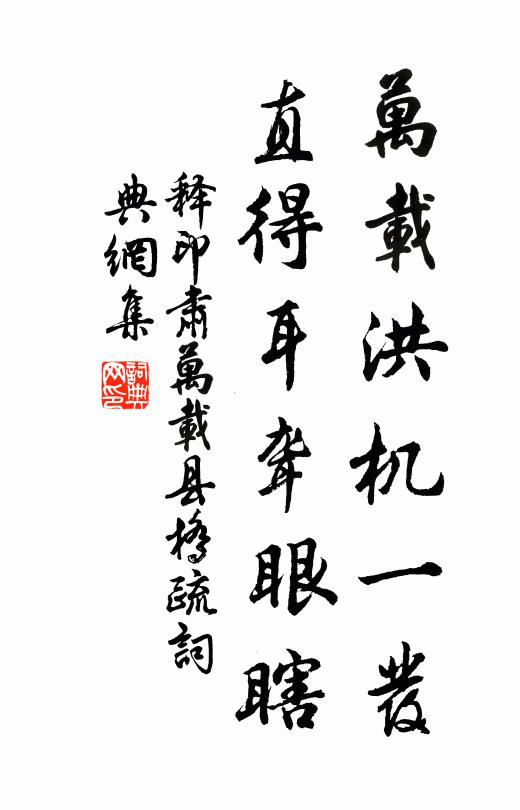 萬載洪机一發
直得耳聾眼瞎
释印肃萬載县橋疏詞
典網集
詞典网印